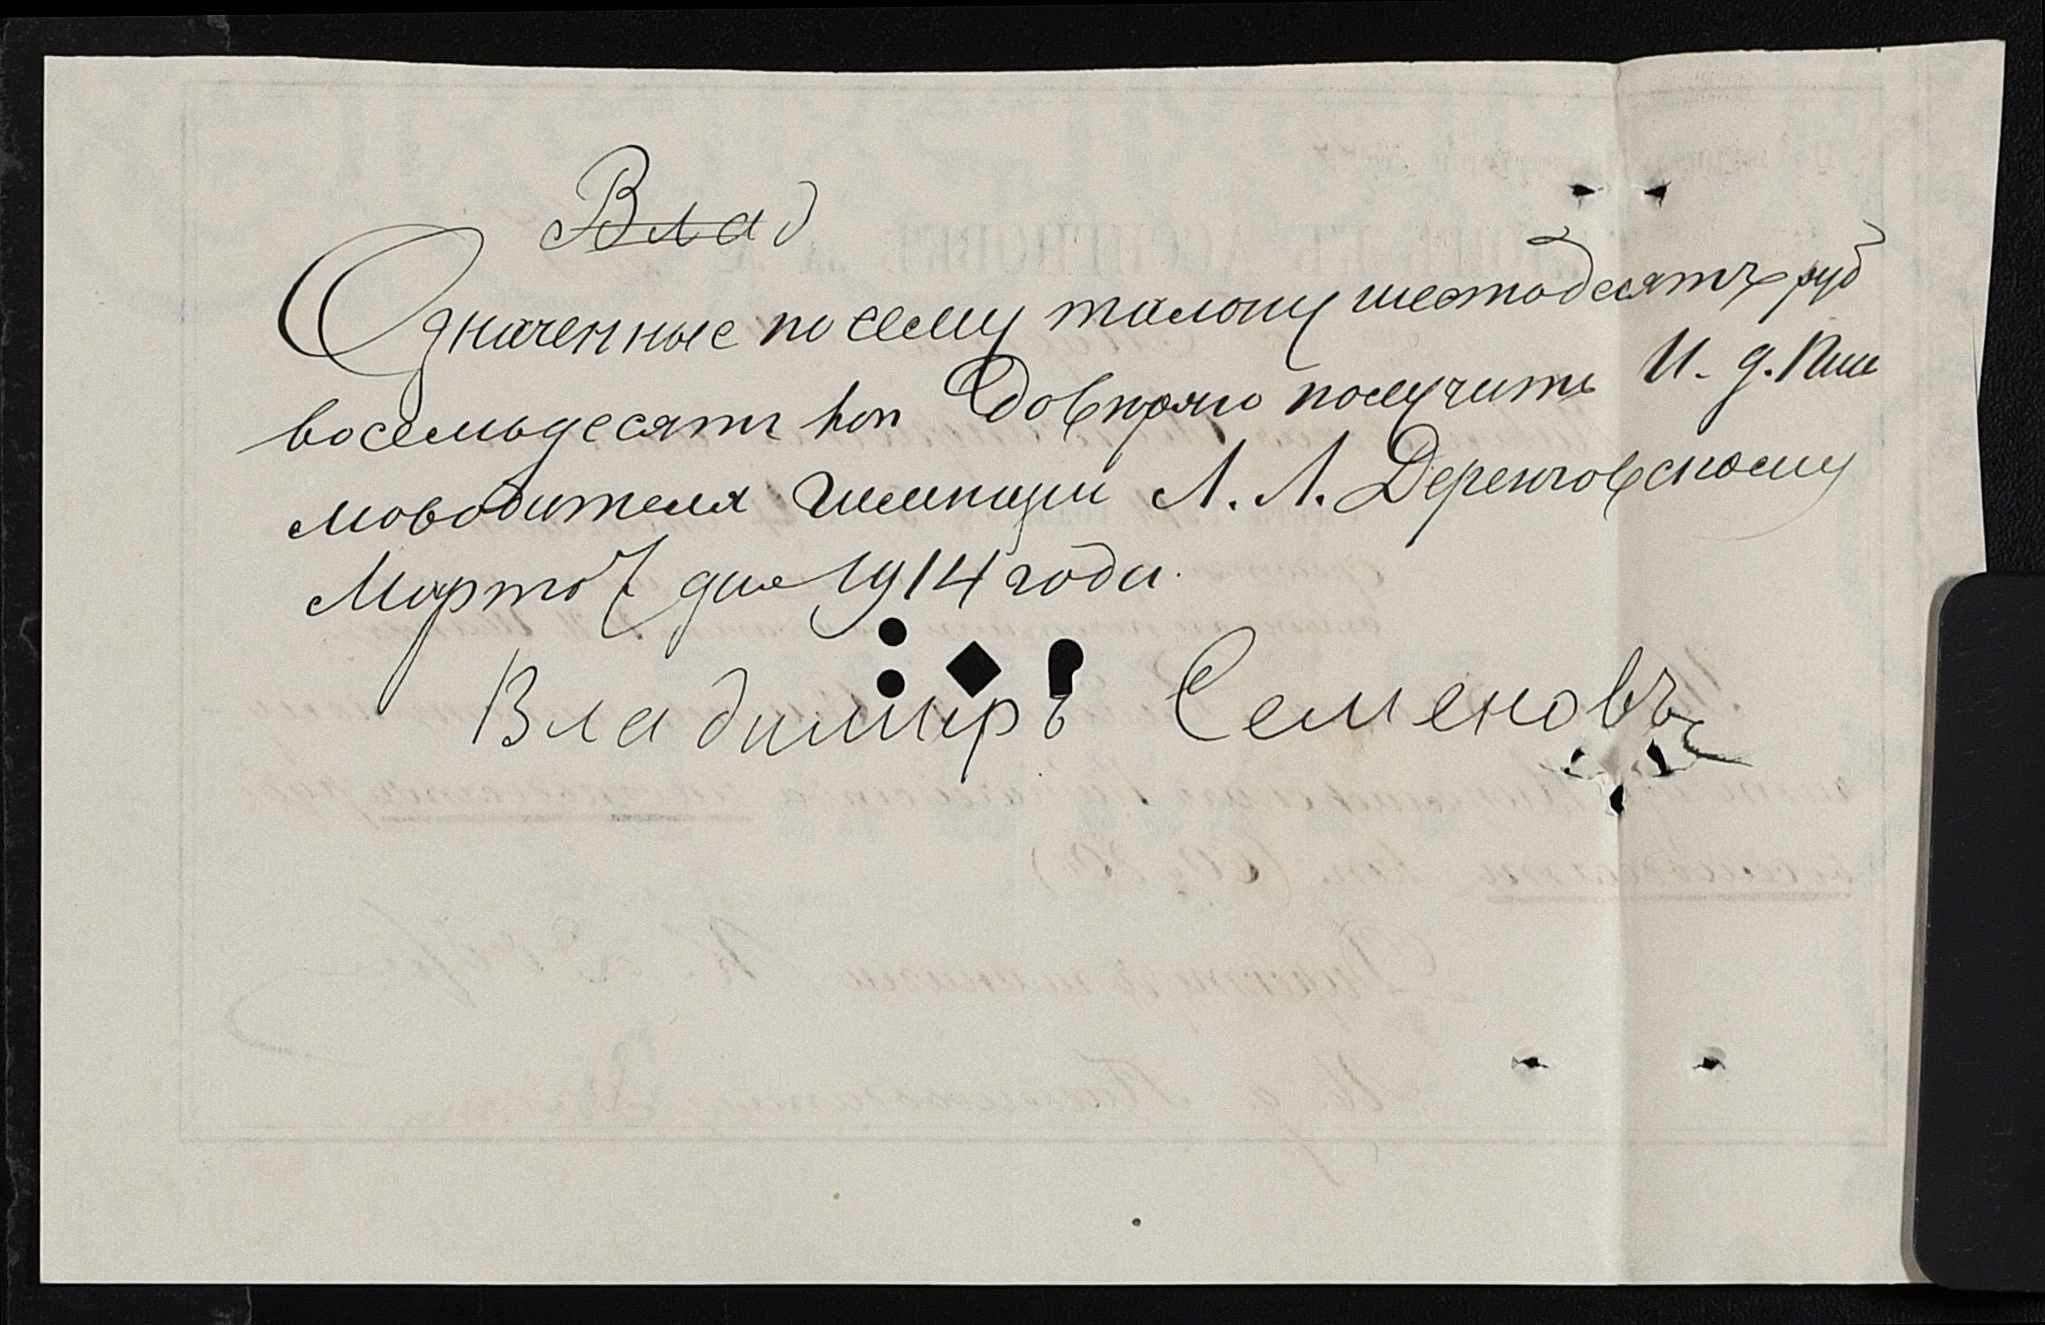 Влад
Означенные по сему талону шестьдесятъ руб
восемьдесятъ коп Довѣряю получить И. д. Пис
моводителя Гимназіи Л. Л. Деренговскому
Марта 7 дня 1914 года.
Владимиръ Семеновъ